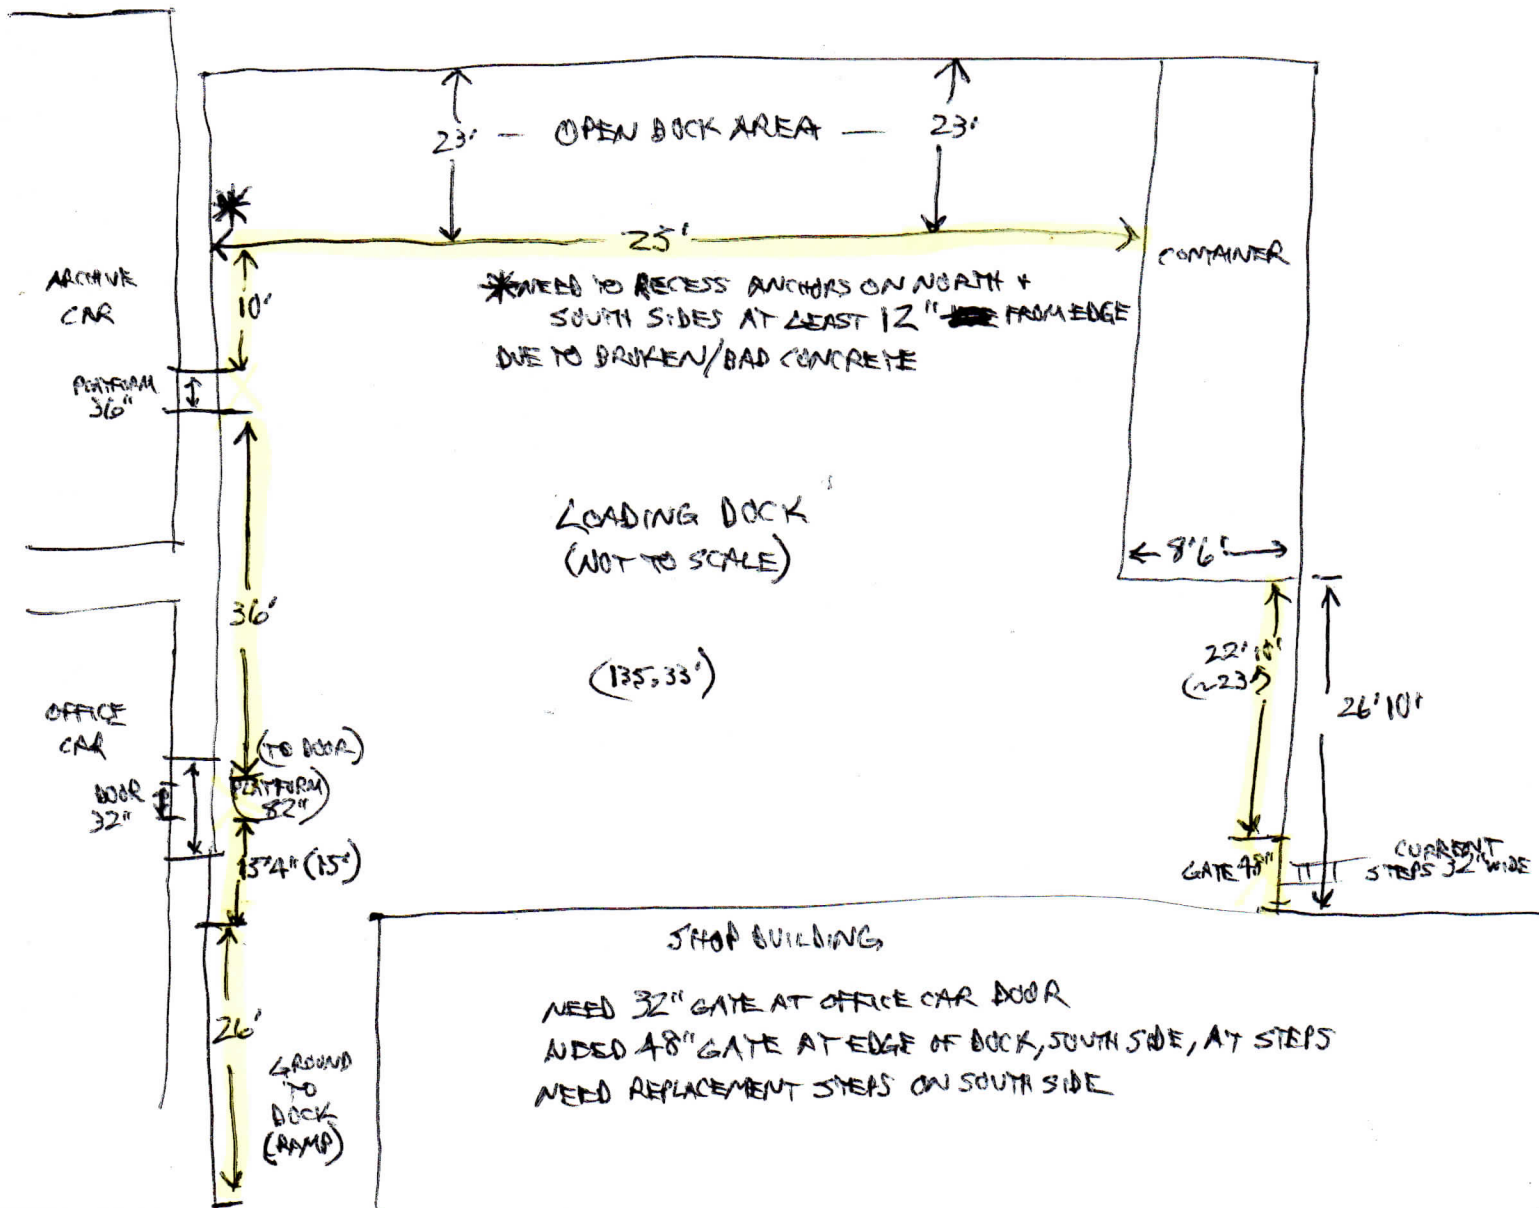 23' — OPEN DOCK AREA — 23'
25'
CONTAINER
ARCHIVE
CAR
10'
*NEED TO RECESS ANCHORS ON NORTH +
SOUTH SIDES AT LEAST 12" FROM EDGE
DUE TO BROKEN/BAD CONCRETE
PLATFORM
36"
LOADING DOCK
(NOT TO SCALE)
8'6"
36'
(135.33')
22'10"
(~23')
26'10"
OFFICE
CAR
(TO DOOR)
DOOR
32"
PLATFORM
82"
15'4" (15')
GATE 48"
CURRENT
STEPS 32" WIDE
SHOP BUILDING
26'
GROUND
TO
DOCK
(RAMP)
NEED 32" GATE AT OFFICE CAR DOOR
NEED 48" GATE AT EDGE OF DOCK, SOUTH SIDE, AT STEPS
NEED REPLACEMENT STEPS ON SOUTH SIDE